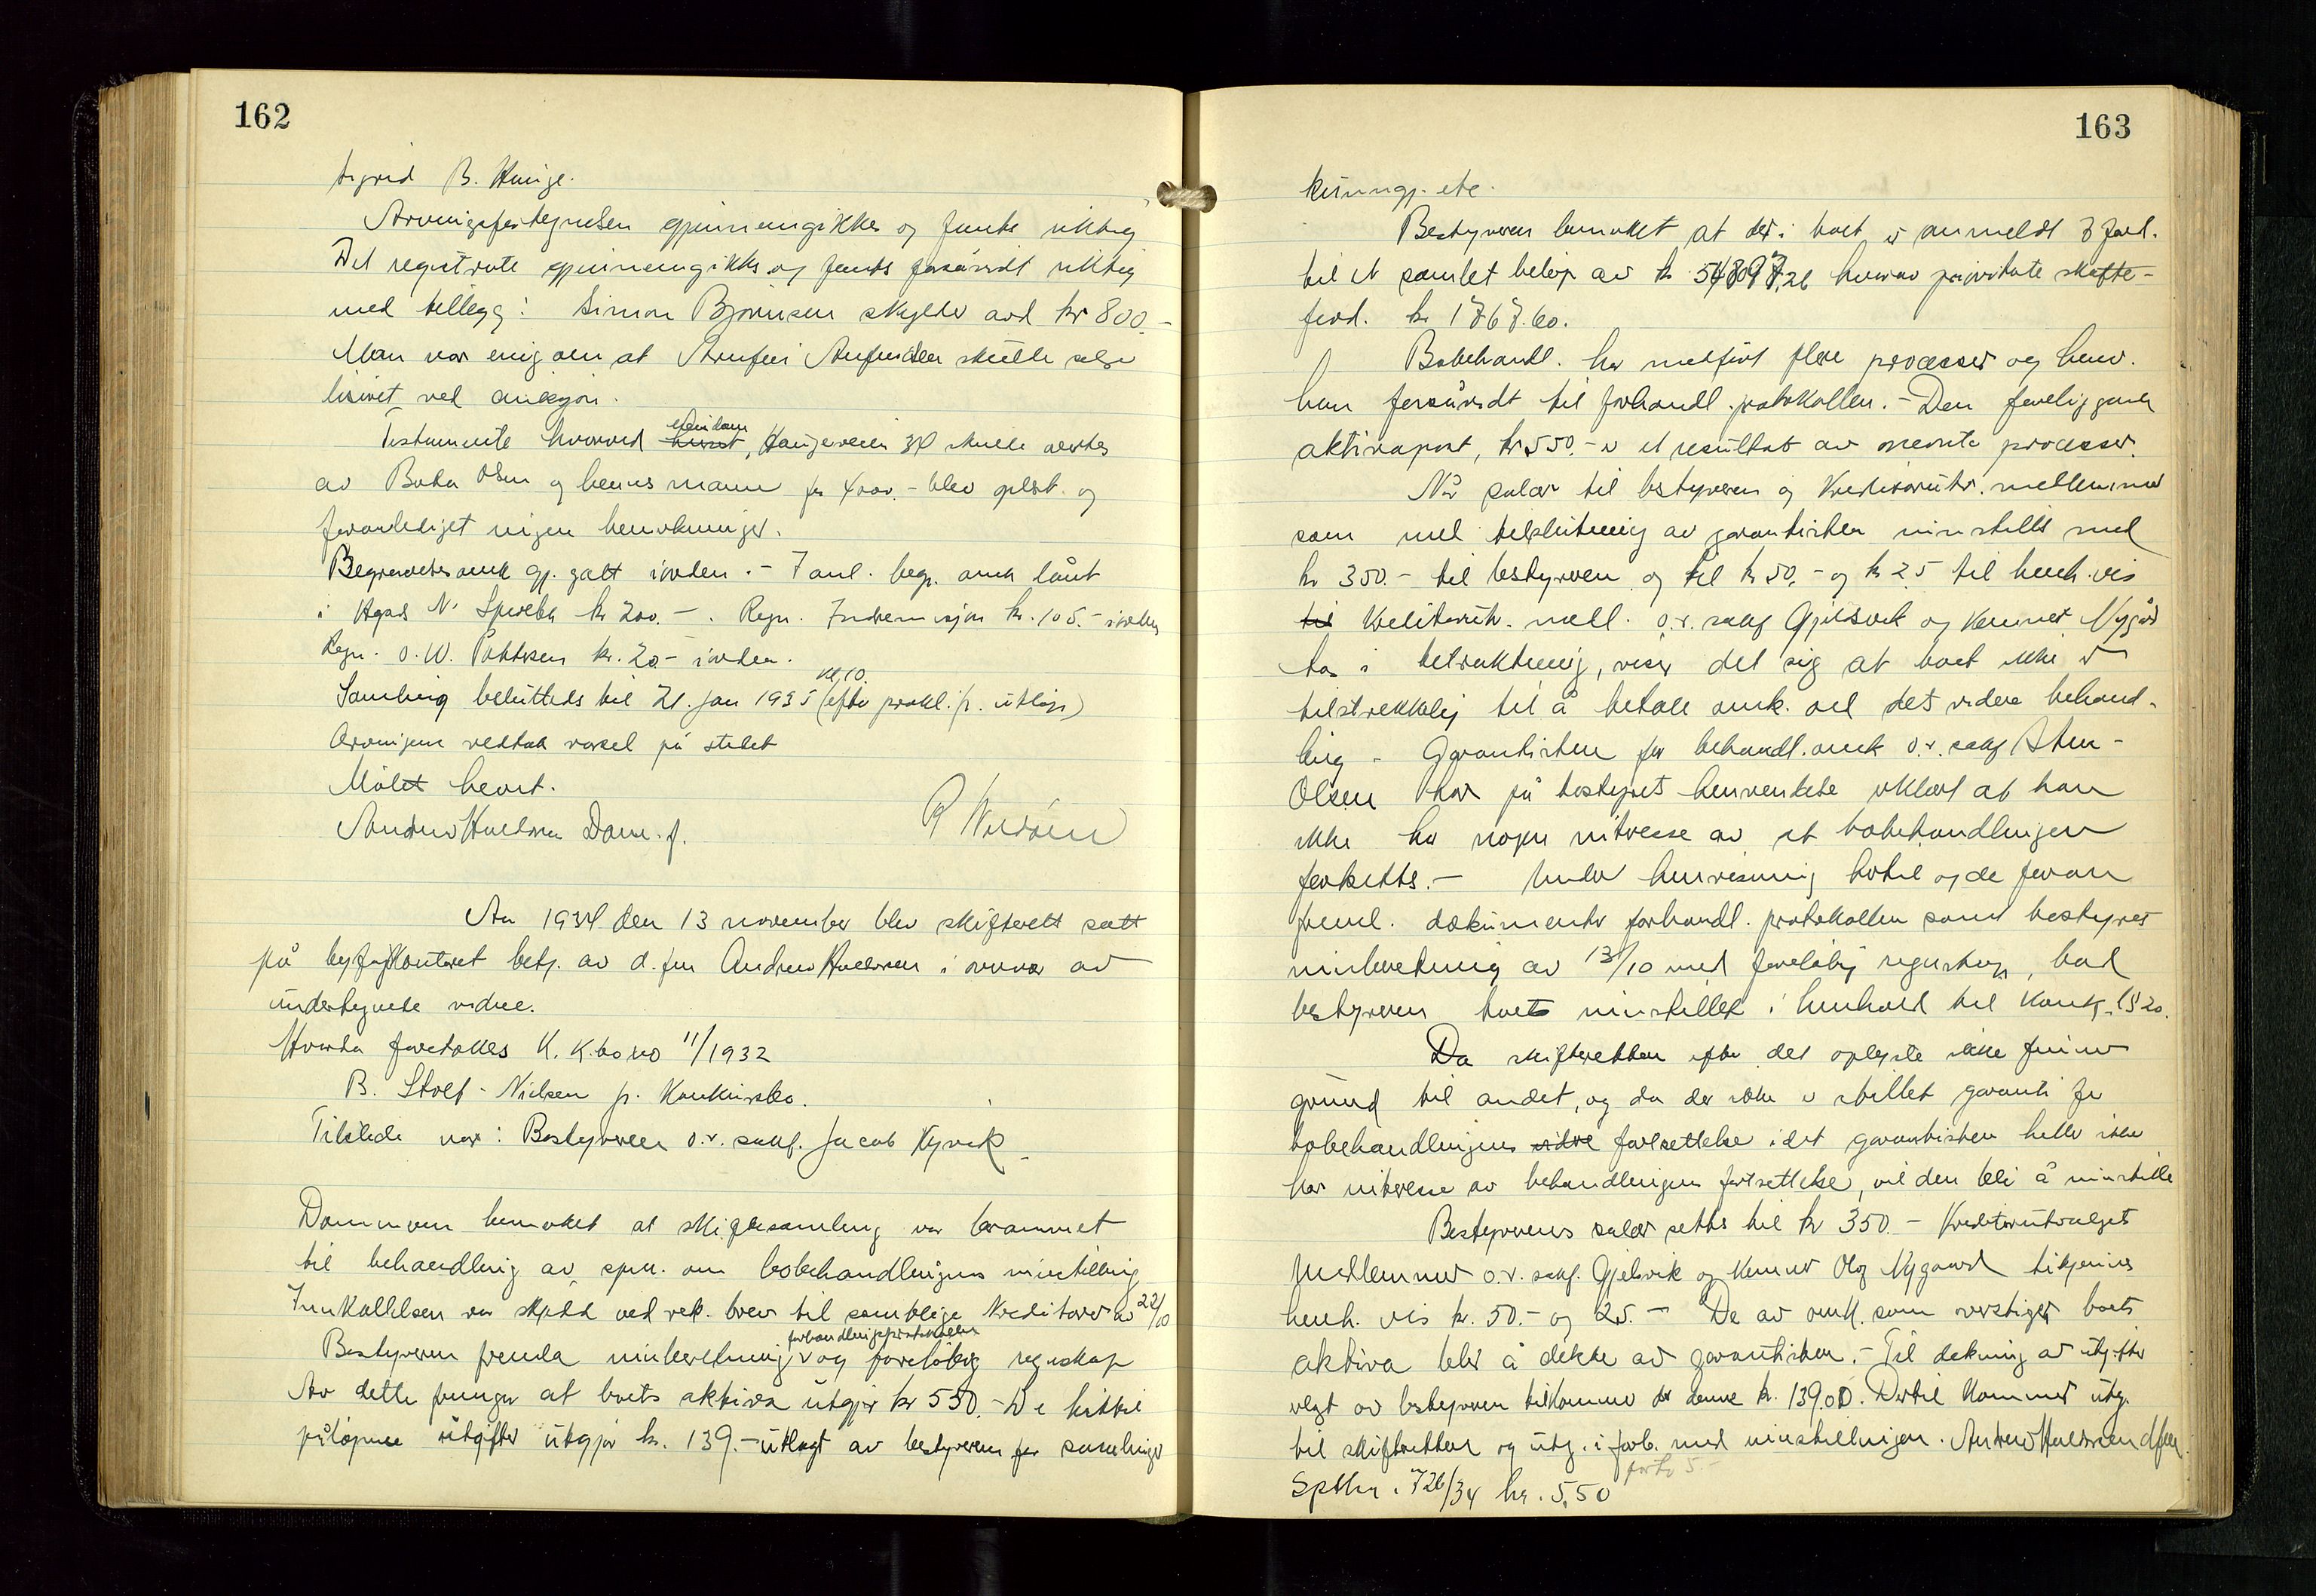 162
Sigrid B. Hauge.
Arvingsfortegnelsen gjennemgikkes og funtes riktig
Det registrerte gjennemgikkes og funtes forsåvidt riktig
med tillegg: Simon Bjørnsen skylder avd kr 800.-
Man var enig om at Arnfinn skulle selge
løsøret ved auksjon.
Testamente hvorved huset eiendom, Haugeveien 34 skulle
av Berta Olsen og hennes mann for 4000.- blev oplest og
foranlediget ingen bemerkninger.
Begravelsesomk gj. gått i orden. - I anl. begr. omk lånt
i Hgsds kr 200.-. Regn. kr. 105.- i orden
Regn. O. W. kr. 20.- i orden.
Samling beluttedes til 21. jan 1935 kl 10. (efter prokl. fr. utløp)
Arvingene vedtok varsel på stedet
Møtet hevet.
Andreas Halvorsen Dom. f.
Aar 1934 den 13 november blev skifterett satt
på byfogdkontoret betj. av d. fm Andreas Halvorsen i nærvær av
undertegnede vidne.
Hvorda foretokes K. K. bo no 11/1932
B. Stolt-Nielsen fr. Konkursbo.
Tilstede var: Bestyreren o.r. sakf. Jacob Kyvik
Dommeren bemerket at skiftesamling var berammet
til behandling av spm. om bobehandlingens innstilling
Innkallelsen var skjedd ved rek. brev til samtlige kreditorer av 22/10
Bestyreren fremla innberetning, forhandlingsprotokollen og foreløbig regnskap
Av dette fremgår at boets aktiva utgjør kr 550.- De hittil
påløpne utgifter utgjør kr. 139.- utlagt av bestyreren for samlinger
163
kunngj. etc.
Bestyreren bemerket at der i boet er anmeldt 8 ford.
til et samlet beløp av kr hvorav priviterte skatte-
ford. kr 1767.60.
Bobehandl. har medført flere processer og henv.
han forsåvidt til forhandl. protokollen. - Den foreliggende
aktivapost, kr 550.- er et resultat av nevnte processer.
Når salær til bestyreren og kreditorutv. medlemmer
som med tilslutning av garantisten innstilles med
kr 350.- til bestyreren og til kr 50.- og kr 25 til hench. vis
til kreditorutv. medl. o.r. sakf Gjelsvik og Kemner Nygård
tas i betraktning, viser det sig at boet ikke er
tilstrekkelig til å betale omk. ved det videre behand-
ling. - Garantisten for behandl. omk o.r. sakf Sten-
Olsen har på bestyrers henvendelse erklært at han
ikke har nogen interesse av at bobehandlingen
fortsettes. - Under henvisning hertil og de foran
freml. dokumenter forhandl. protokollen samt bestyrers
innberetning av 13/10 med foreløbig regnskap, bad
bestyreren boet innstillet i henhold til konk. l § 20.
Da skifteretten efter det oplyste ikke finner
grunn til andet, og da der ikke er stillet garanti for
bobehandlingens vidre fortsettelse idet garantisten heller ikke
har interesse av behandlingens fortsettelse, vil den bli å innstille
Bestyrerens salær settes til kr 350.- Kreditorutvalgets
medlemmer o.r. sakf. Gjelsvik og kemner Olaf Nygaard tilkjennes
hench. vis kr. 50.- og 25.- De av omk. som overstiger boets
aktiva blir å dekke av garantisten. - Til dekning av utgifter
utlagt av bestyreren tilkommer der denne kr. 139.00. Dertil kommer utg.
til skifteretten og utg. i forb. med innstillingen. Andreas Halvorsen dfm.
porto 5.-
Sptlr. i 726/34 kr. 5,50